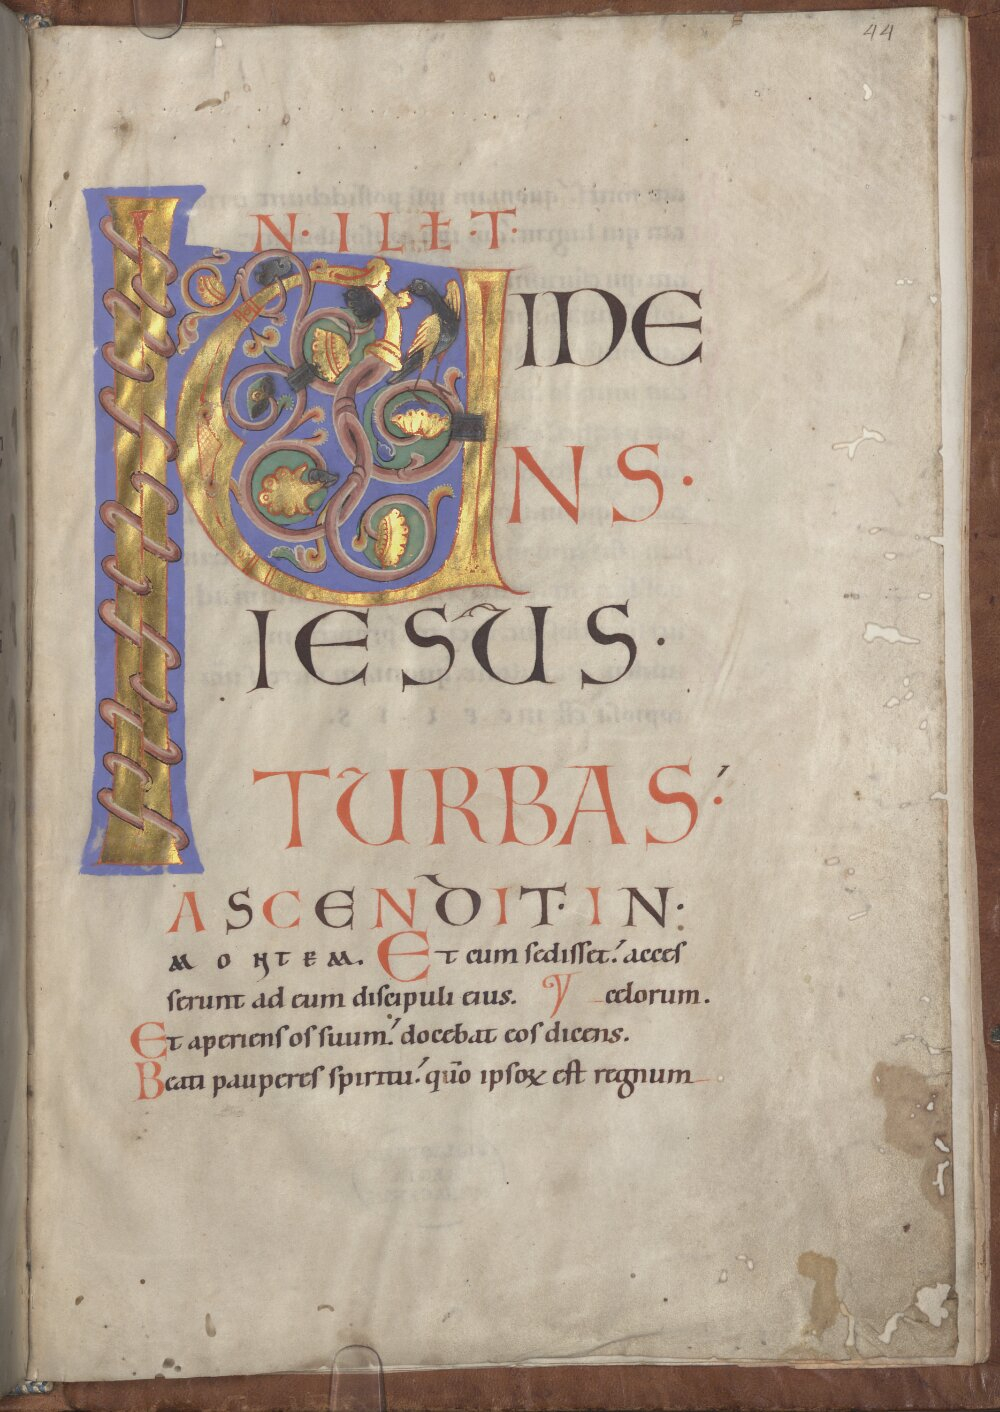 44
IN·ILLŁT·
UIDE
NS·
IESUS·
TURBAS:
ASCENDIT·IN·
MONTEM. Et cum sedisset: acces
serunt ad eum discipuli eius. V celorum.
Et aperiens os suum: docebat eos dicens.
Beati pauperes spiritu: qūo ipsoꝝ est regnum